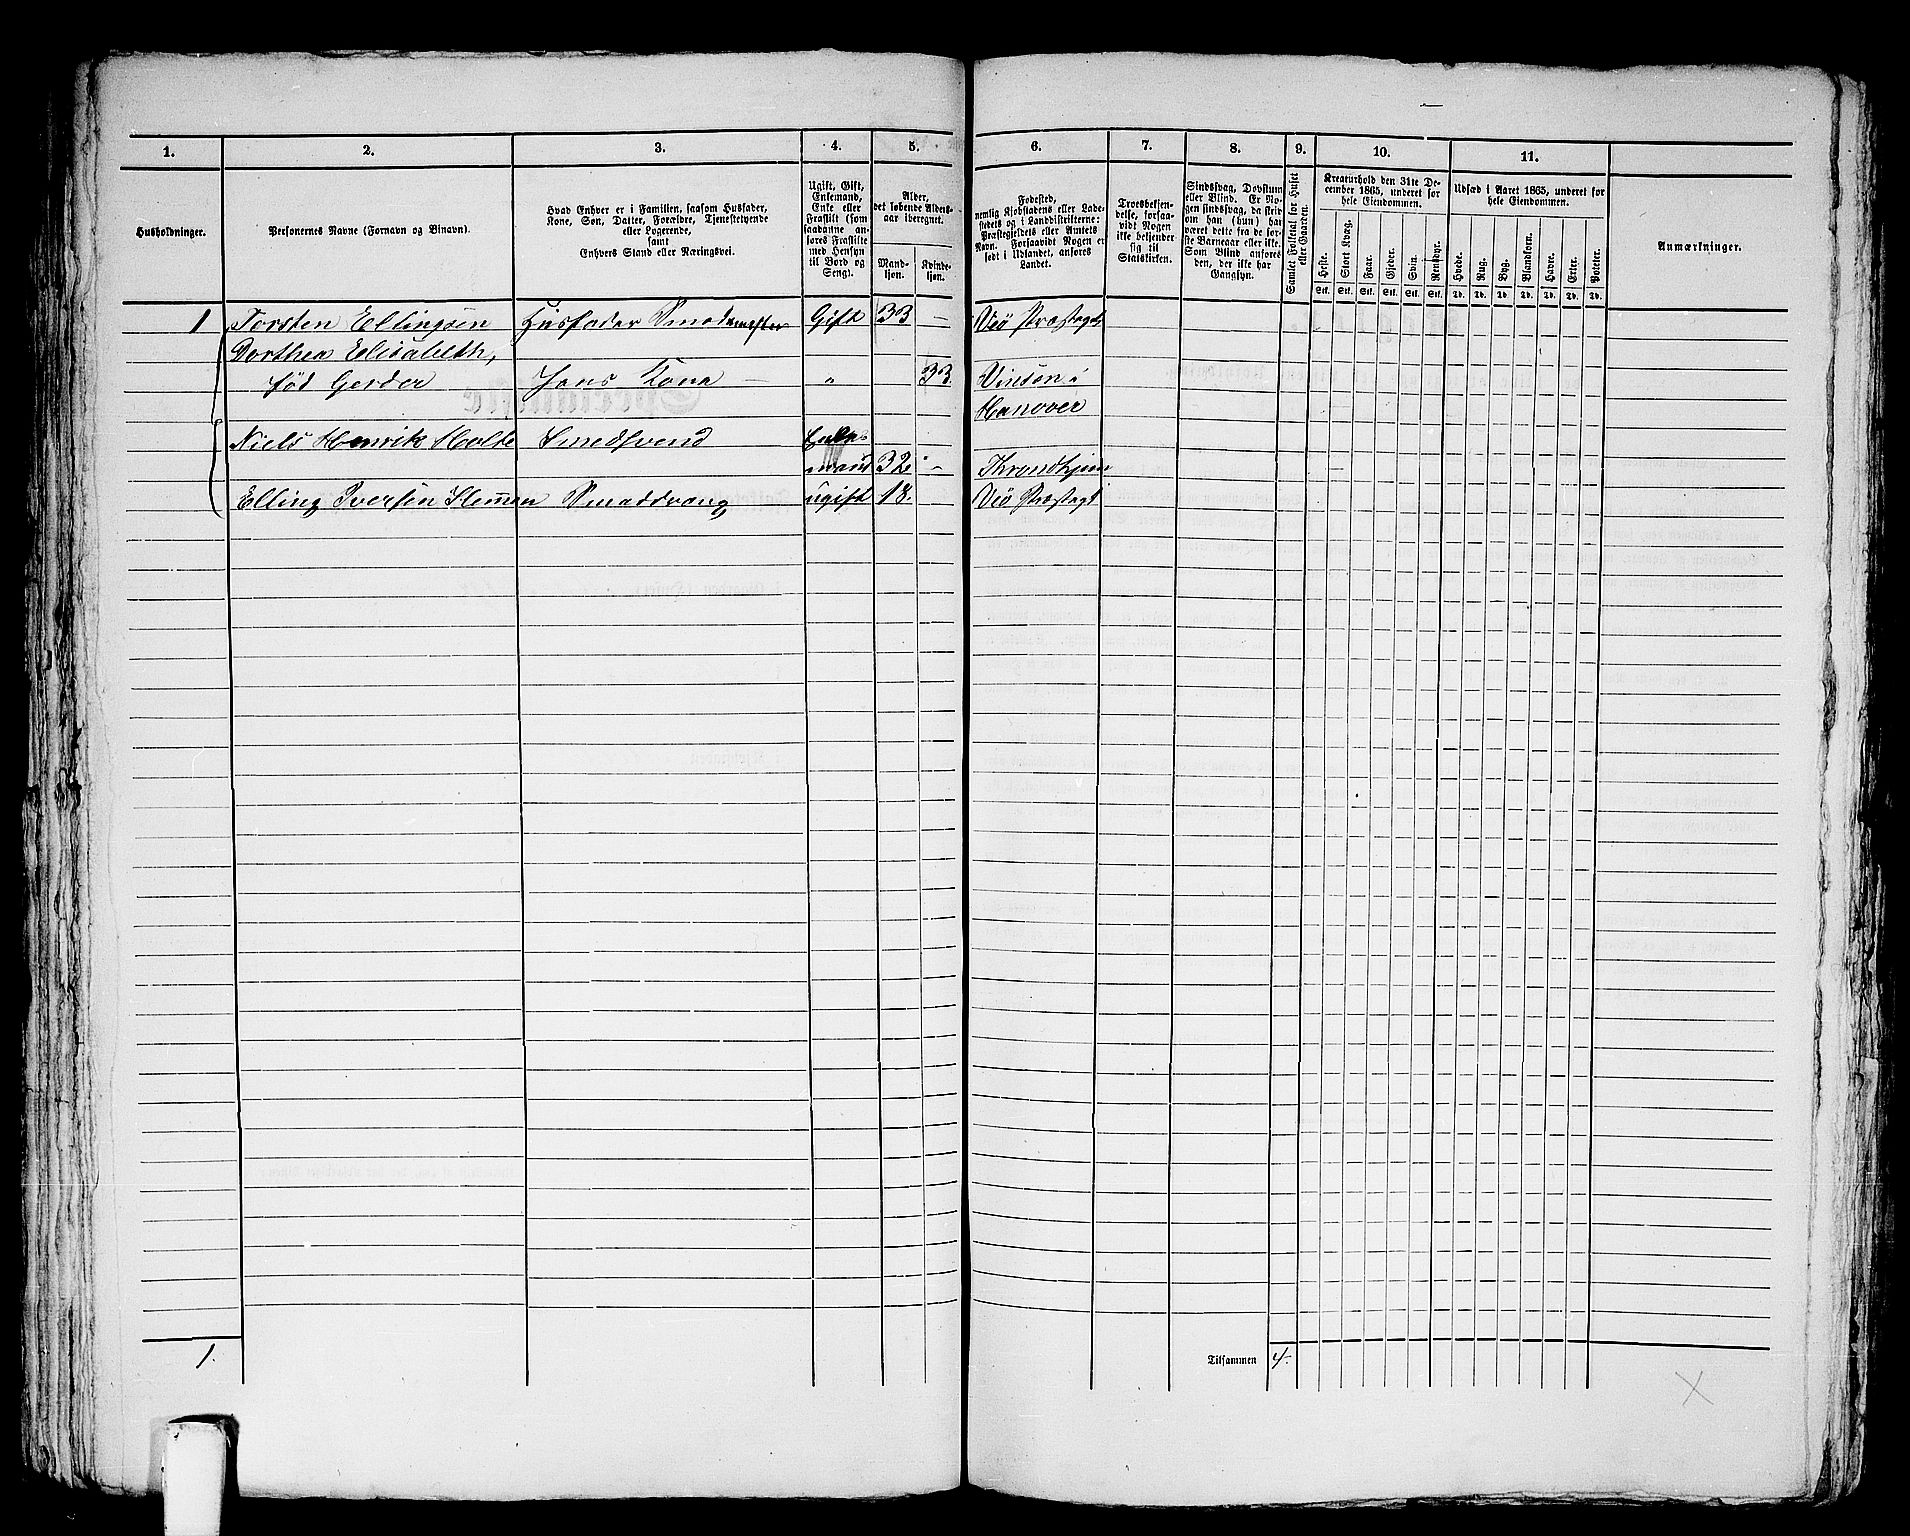 1. 2. 3. 4. 5. 6. 7. 8. 9. 10. 11.
Husholdninger.
Personernes Navne (Fornavn og Binavn).
Hvad Enhver er i Familien, saasom Husfader,
Kone, Søn, Datter, Forældre, Tjenestetyende
eller Logerende,
samt
Enhvers Stand eller Næringsvei.
Ugift, Gift,
Enkemand,
Enke eller
Fraskilt (som
saadanne an-
føres Fraskilte
med Hensyn
til Bord og
Seng).
Alder,
det løbende Alders-
aar iberegnet.
Mand-
kjøn.
Kvinde-
kjøn.
Fødested,
nemlig Kjøbstadens eller Lade-
stedets og i Landdistrikterne:
Præstegjeldets eller Amtets
Navn. Forsaavidt Nogen er
født i Udlandet, anføres
Landet.
Troesbekjen-
delse, forsaa-
vidt Nogen
ikke bekjender
sig til
Statskirken.
Sindssvag, Døvstum
eller Blind. Er No-
gen sindssvag, da skriv
om han (hun) har
været dette fra de før-
ste Barneaar eller ikke.
Som Blind anføres
den, der ikke har
Gangsyn.
Samlet Folketal for Huset
eller Gaarden.
Kreaturhold den 31te De-
cember 1865, underet for
hele Eiendommen.
Heste. Stort Kvæg. Faar. Gjeder. Svin. Rensdyr.
Stk. Stk. Stk. Stk. Stk. Stk.
Udsæd i Aaret 1865, underet for
hele Eiendommen.
Hvede. Rug. Byg. Blandkorn. Havre. Erter. Poteter.
Td. Td. Td. Td. Td. Td. Td.
Anmærkninger.
1 Torsten Ellingsen Husfader Smedemester Gift 33 – Veø Præstegt
Dorthea Elisabeth,
fød Gerder Hans Kone – " 33. Vinsen i
Hanover
Niels Henrik Holte Smedsvend Enke-
mand 32 – Throndhjem
Elling Iversen Ugift 18. – Veø Præstegt
1.
Tilsammen 4.
X